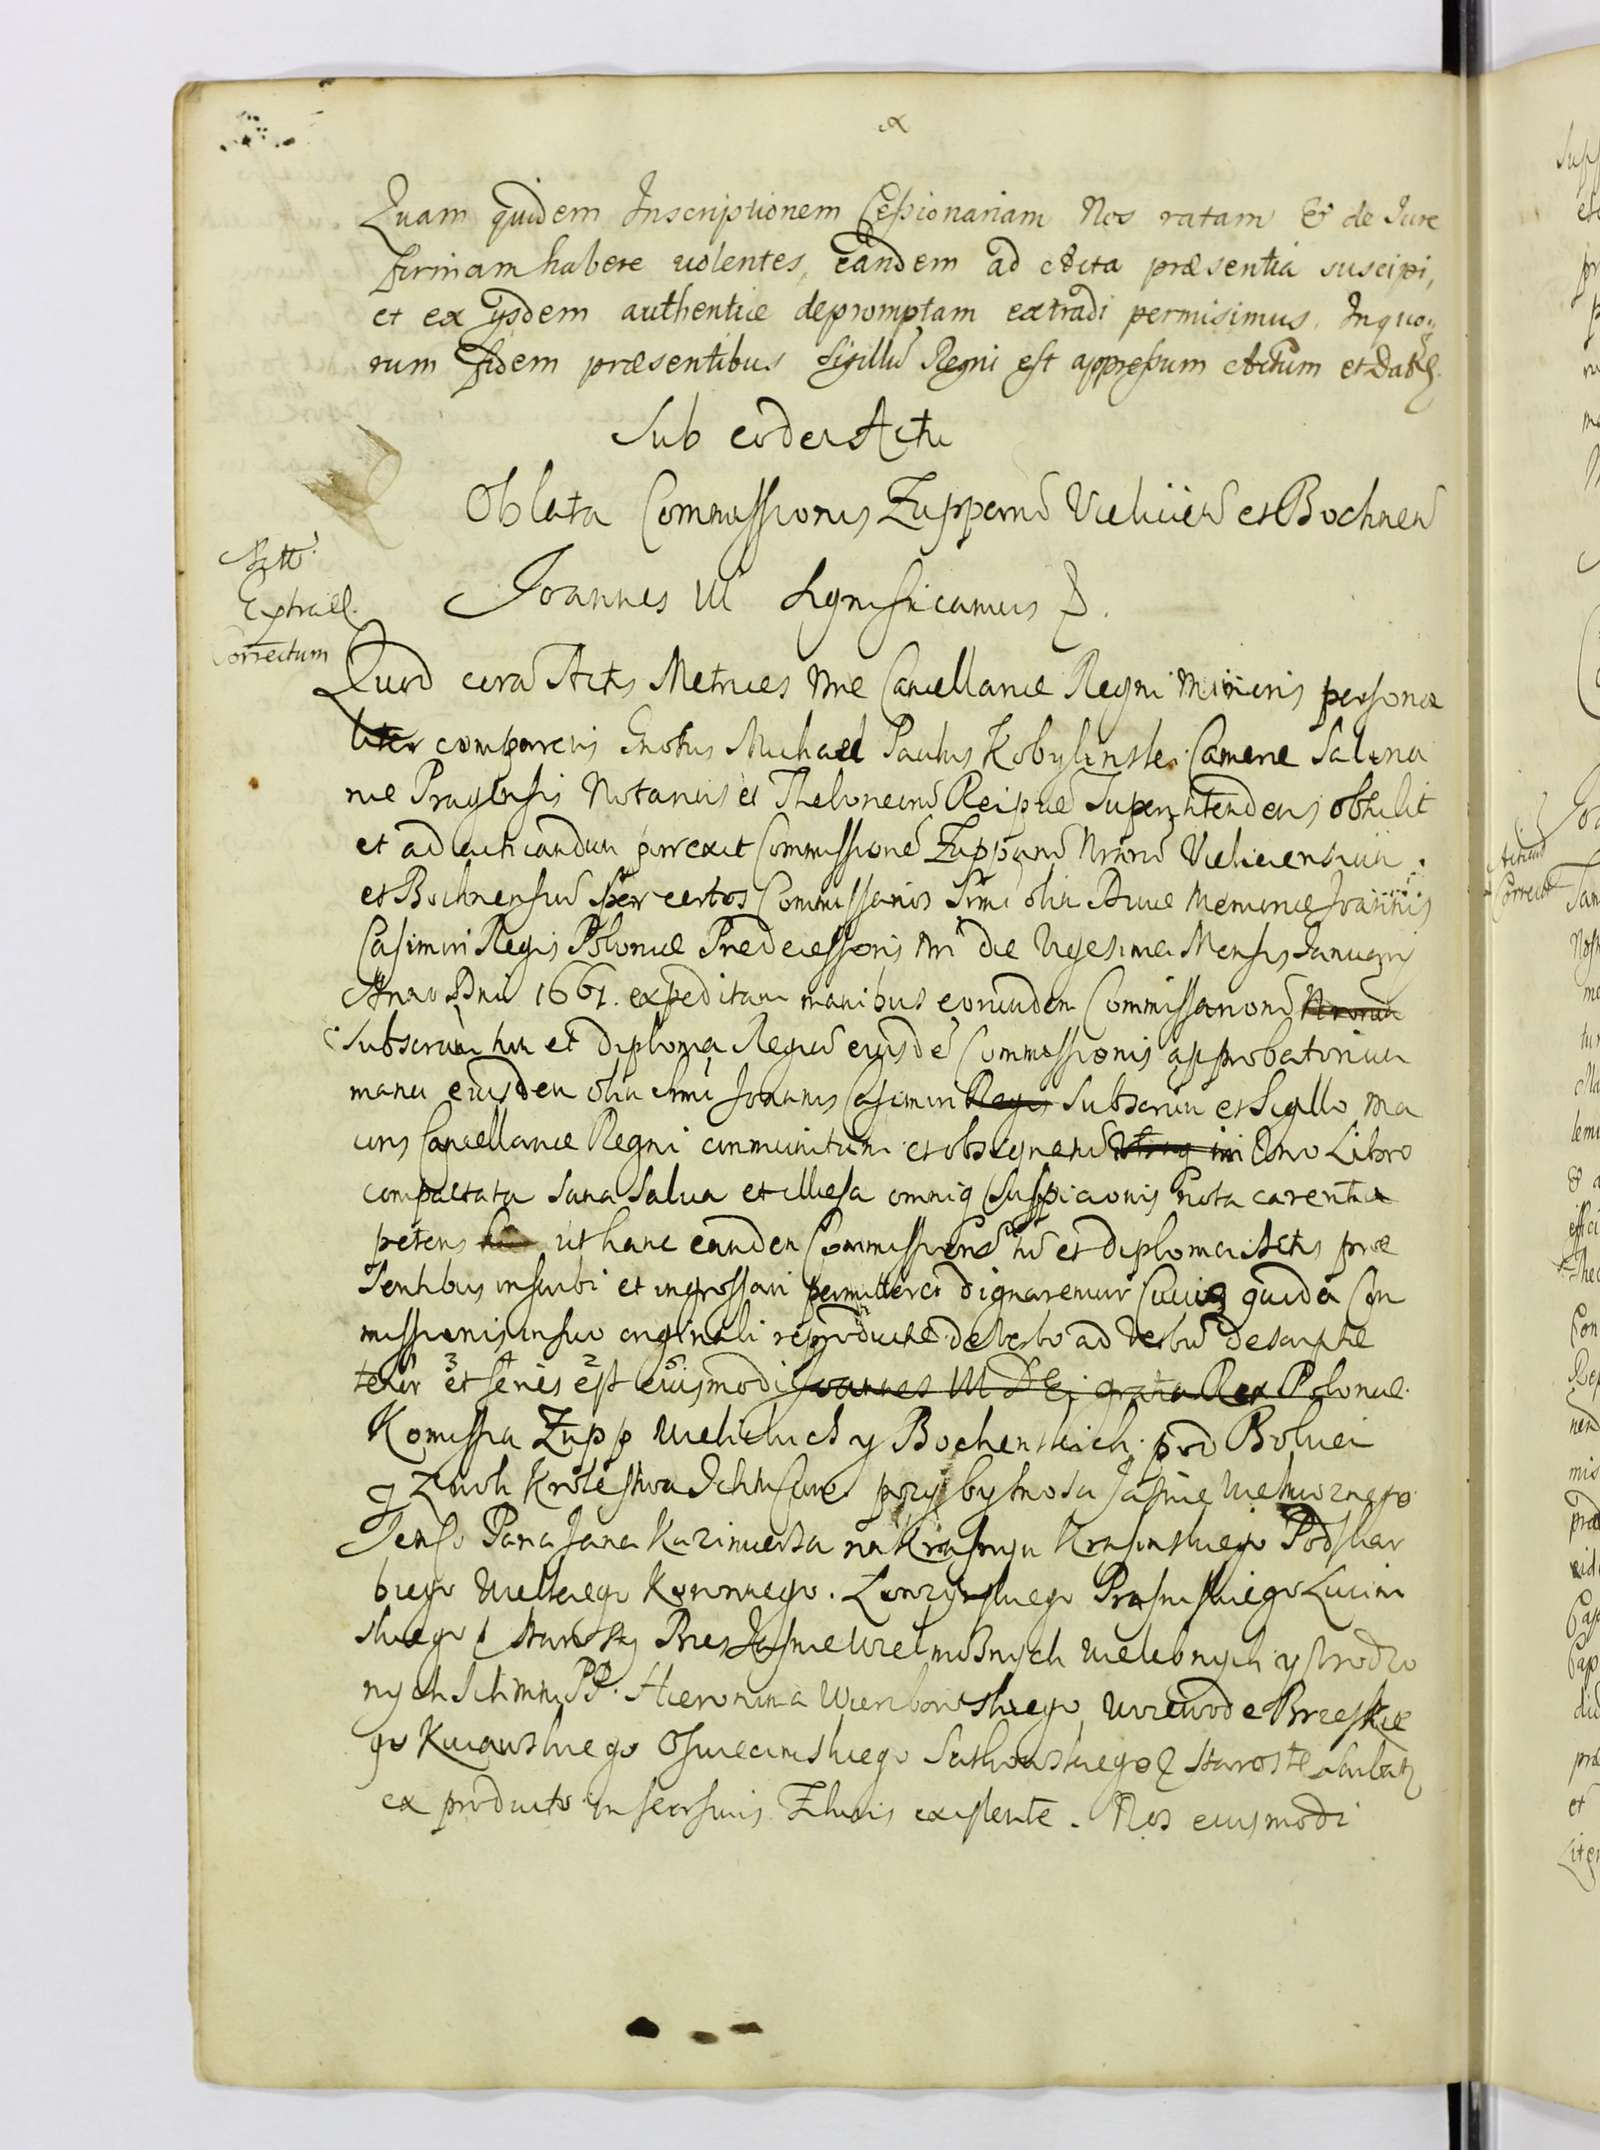 Quam quidem Inscriptionem Cessionariam Nos ratam & de Jure
firmam habere volentes, eandem ad Acta præsentia suscipi,
et ex ijsdem authentice depromptam extradi permisimus. In quo
rum fidem præsentibus Sigillũ Regni est appressum Actum et Dat
Sub eodem Actu
Oblata Commissionis Zupparũ Vieliciẽ et Bochneñ
Extrad.
Correctum
Joannes III Significamus
Quod corã Actis Metrices Nrae Cancellariæ Regni Minoris persona
liter comparens Gnosus Michael Paulus Kobylinski Camerae Salina
Notarius et Theloneorũ Reipcae Superintendens obtulit
et ad acticandum porrexit Commissionẽ Zupparũ Nrarũ Vieliciensium
et Bochnensiũ per certos Commissarios Srmi olim Divae Memoriae Joannis
Casimiri Regis Poloniæ Predecessoris Nri die Vigesima Mensis Januarij
Anno Dni 1661. expeditam manibus eorundem Commissariorũ Nrorum
Subscriptam et diploma Regiũ eiusdẽ Commissionis approbatorium
manu eiusdem olim Srmi Joannis Casimiri Regis Subscriptum et Sigillo Ma
ioris Cancellariæ Regni communitum et obsignatũ Uno Libro
compactata sana salva et illæsa omniq suspicionis nota carentia
petens ut hanc eandem Commissionẽ et diploma Actis præ
sentibus inscribi et ingrossari permittere dignaremur Cuius quidẽ Com
missionis in suo originali reproductæ de verbo ad verbũ descriptæ
tenor et series est eiusmodi Joannes III DEi gratia Rex Poloniæ
Komissia Zupp Wielickich y Bochenskich pro Bolnei
y Zwoli Krolestwa Ichmsciow przy bytnosci Jasnie Wielmoznego
Jemsci Pana Jana Kazimierza na Krasnym Krasinskiego Podskar
biego Wielkiego Koronnego. Lomzynskiego Prasniskiego
skiego Starosty Przez Jasnie Wielmoznych Wielebnych y Urodzo
nych Ichmw PP. Hieronima Wierzbowskiego Woiewodę Brzeskie
go Kuiawskiego Oswiecimskiego Starostę
ex producto in seorsivis existente. Nos eiusmodi